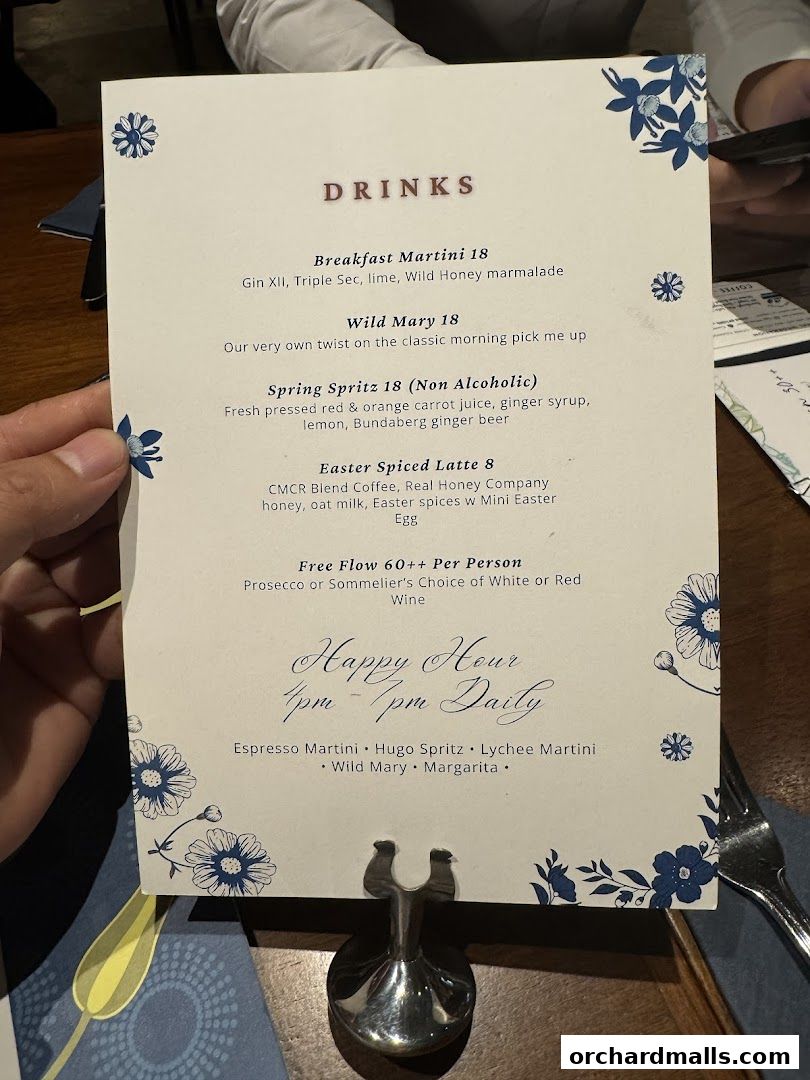 DRINKS
Breakfast Martini 18
Gin XII, Triple Sec, lime, Wild Honey marmalade
Wild Mary 18
Our very own twist on the classic morning pick me up
Spring Spritz 18 (Non Alcoholic)
Fresh pressed red & orange carrot juice, ginger syrup,
lemon, Bundaberg ginger beer
Easter Spiced Latte 8
CMCR Blend Coffee, Real Honey Company
honey, oat milk, Easter spices w Mini Easter
Egg
Free Flow 60++ Per Person
Prosecco or Sommelier's Choice of White or Red
Wine
Happy Hour
4pm - 7pm Daily
Espresso Martini • Hugo Spritz • Lychee Martini
• Wild Mary • Margarita •
orchardmalls.com